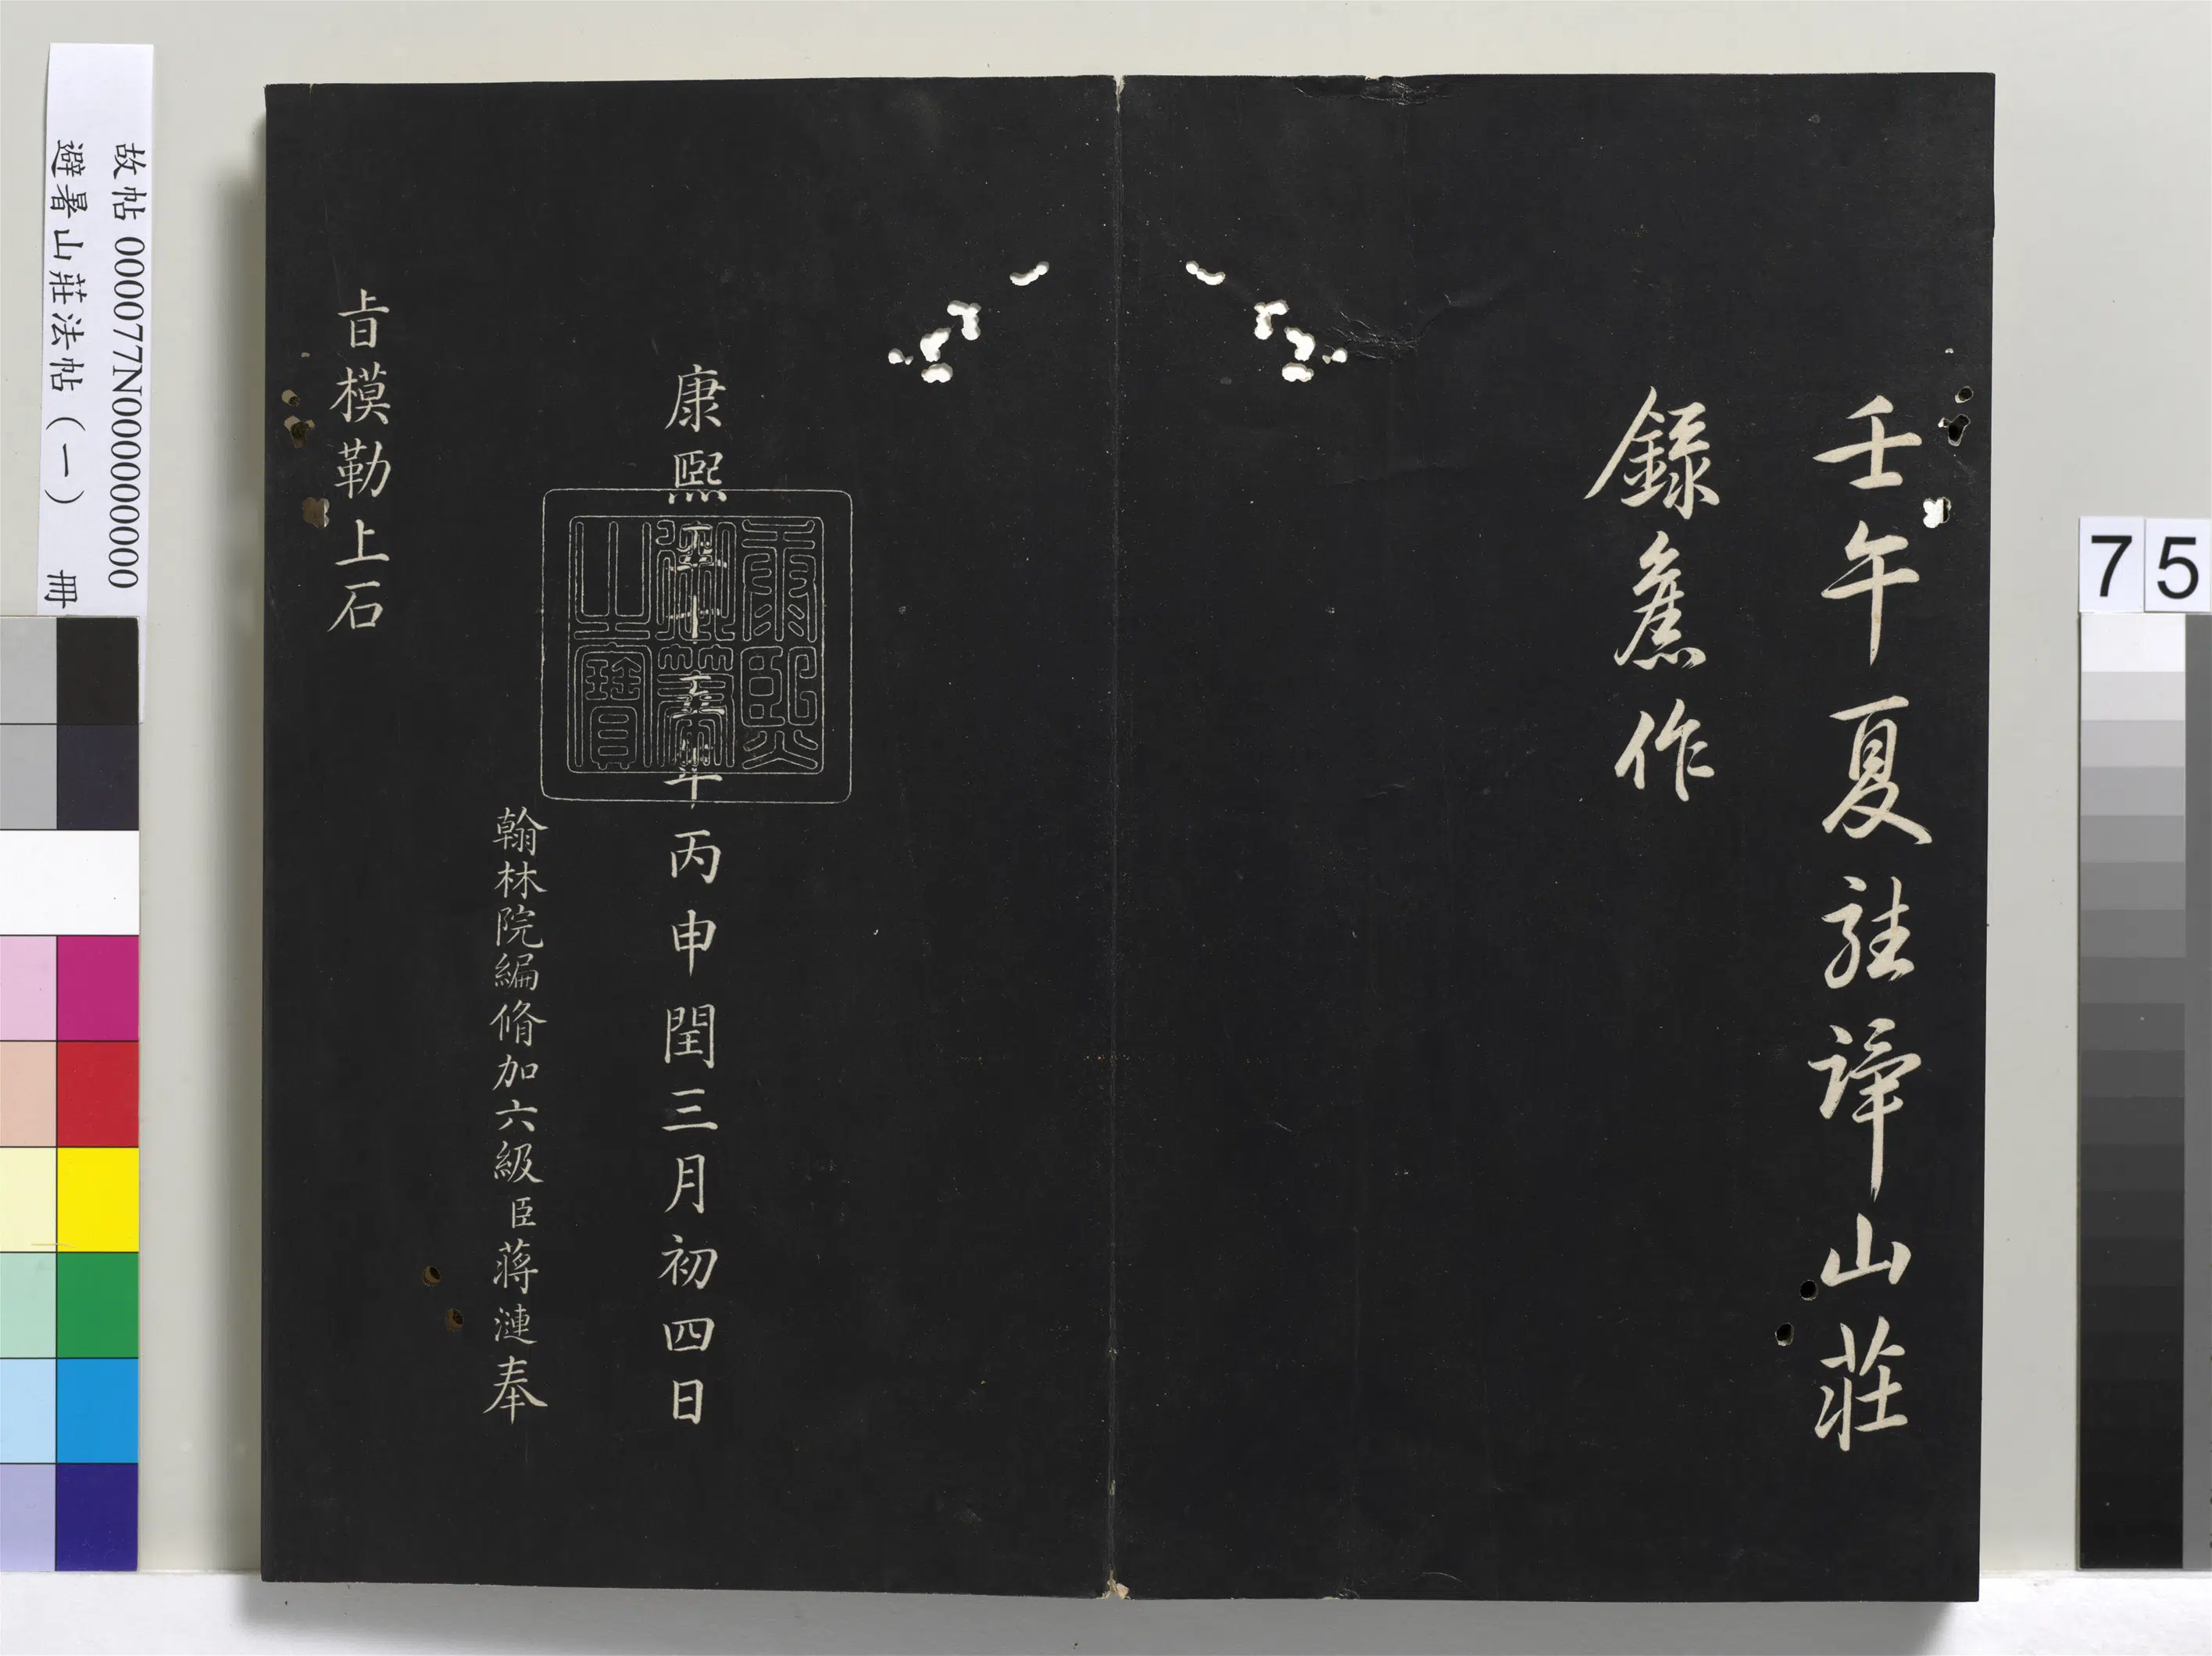 壬午夏駐蹕山莊
錄舊作
康熙五十五年丙申閏三月初四日
康熙
御筆
之寶
翰林院編脩加六級臣蔣漣奉
旨模勒上石
故帖 000077N000000000
避暑山莊法帖（一） 冊
75